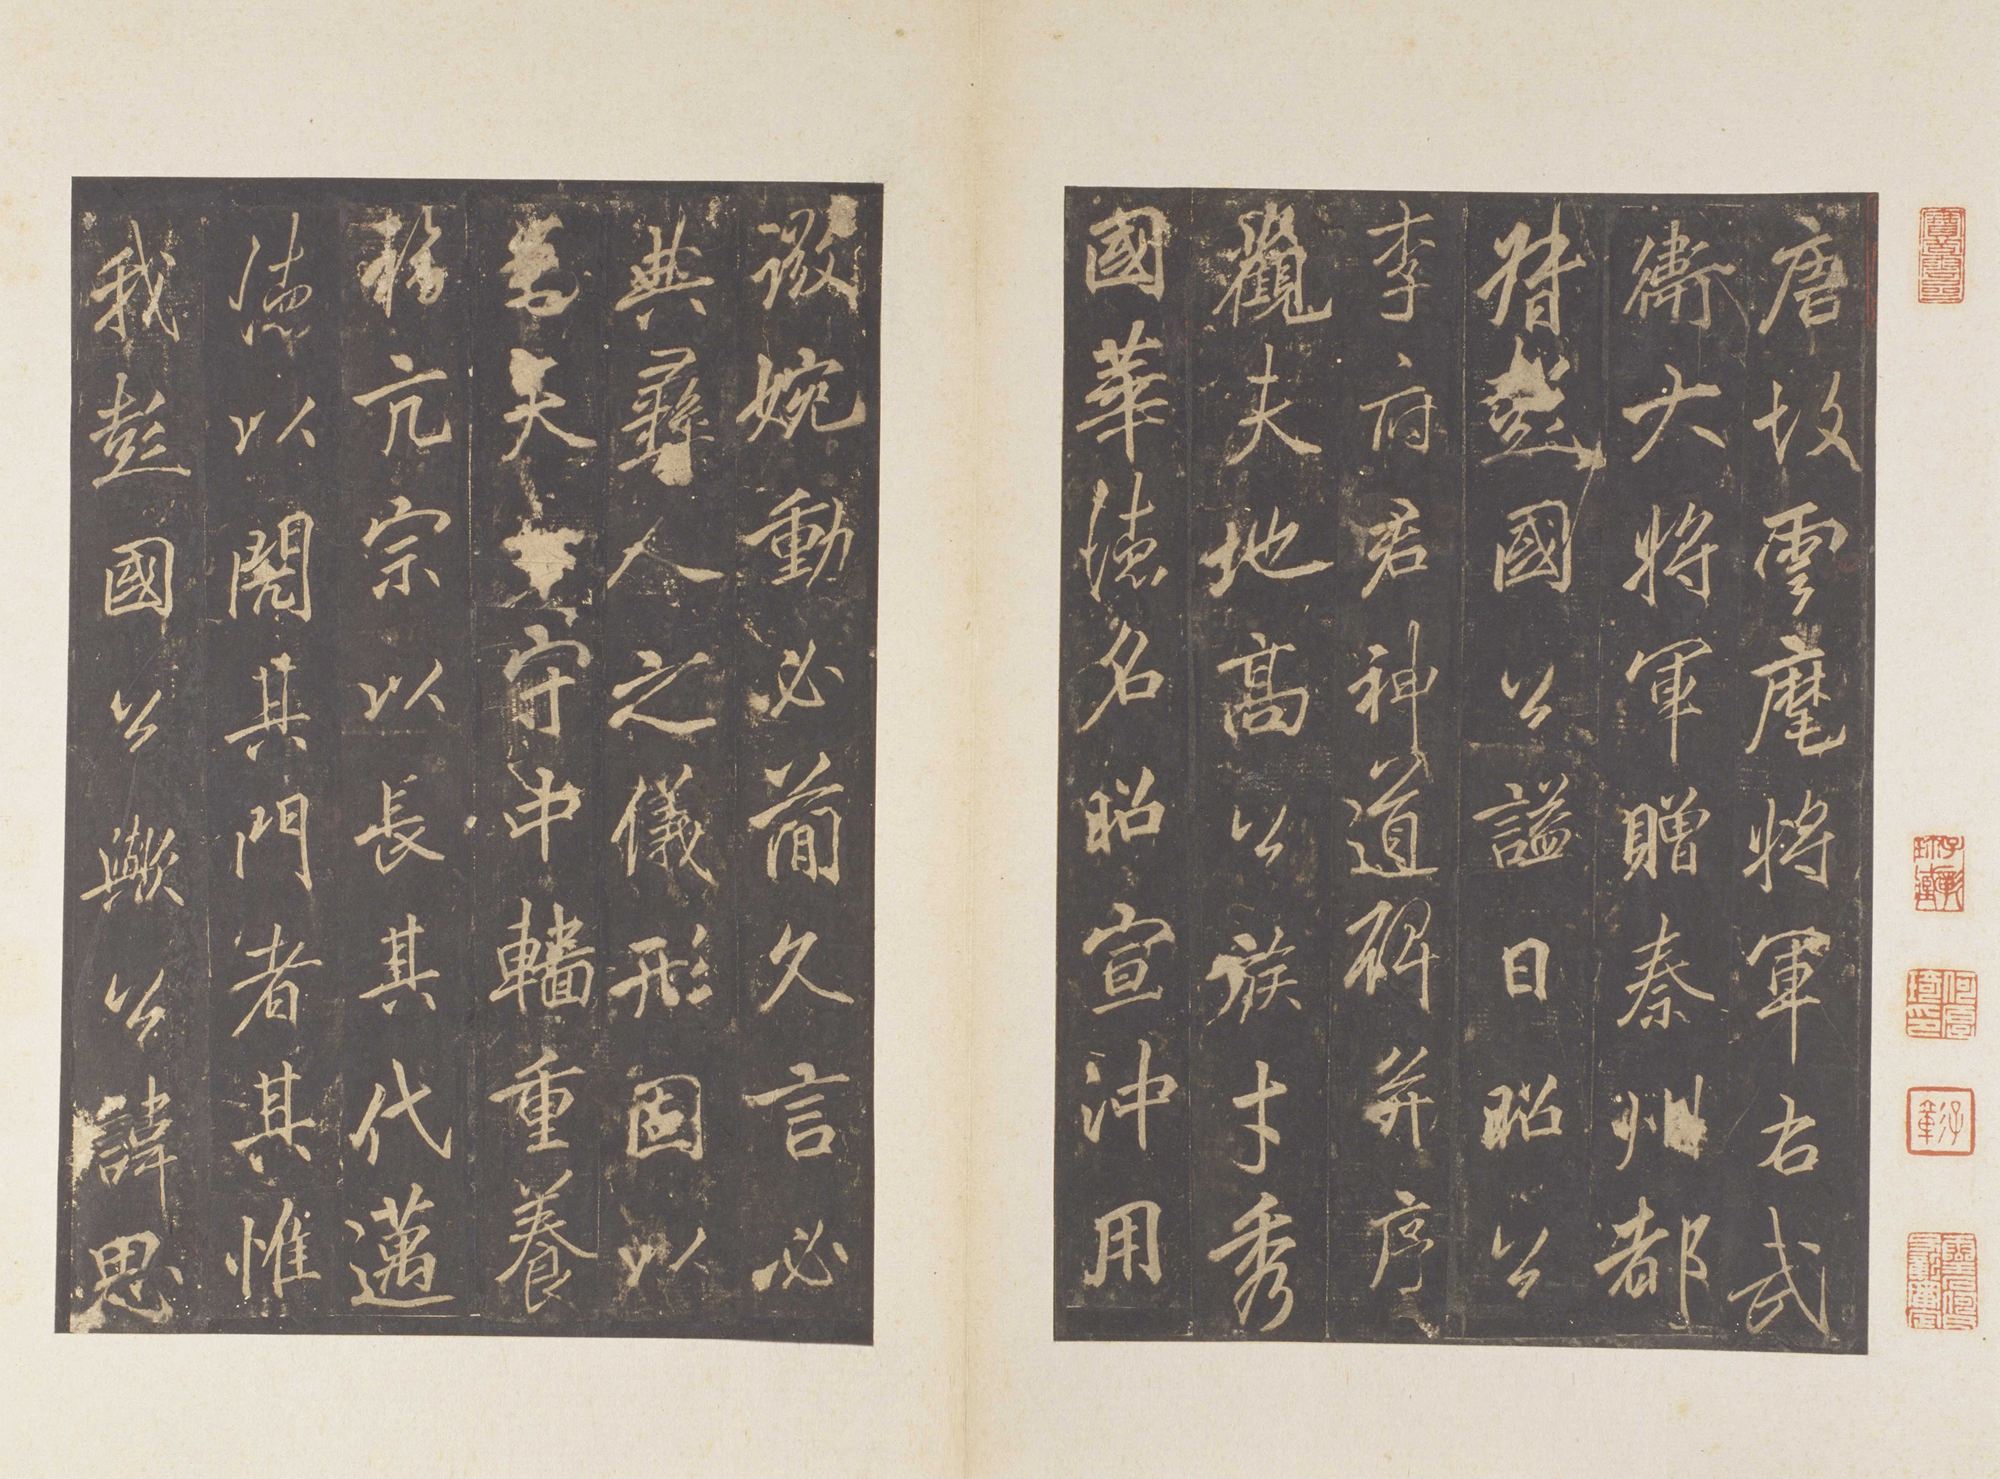 唐故雲麾將軍右武
衛大將軍贈秦州都
督彭國公謚曰昭公
李府君神道碑并序
觀夫地高公族才秀
國華德名昭宣沖用
微婉動必簡久言必
典彝人之儀形固以
矣守中轓重養
福亢宗以長其代邁
德以其門者其惟
我彭國公歟公諱思